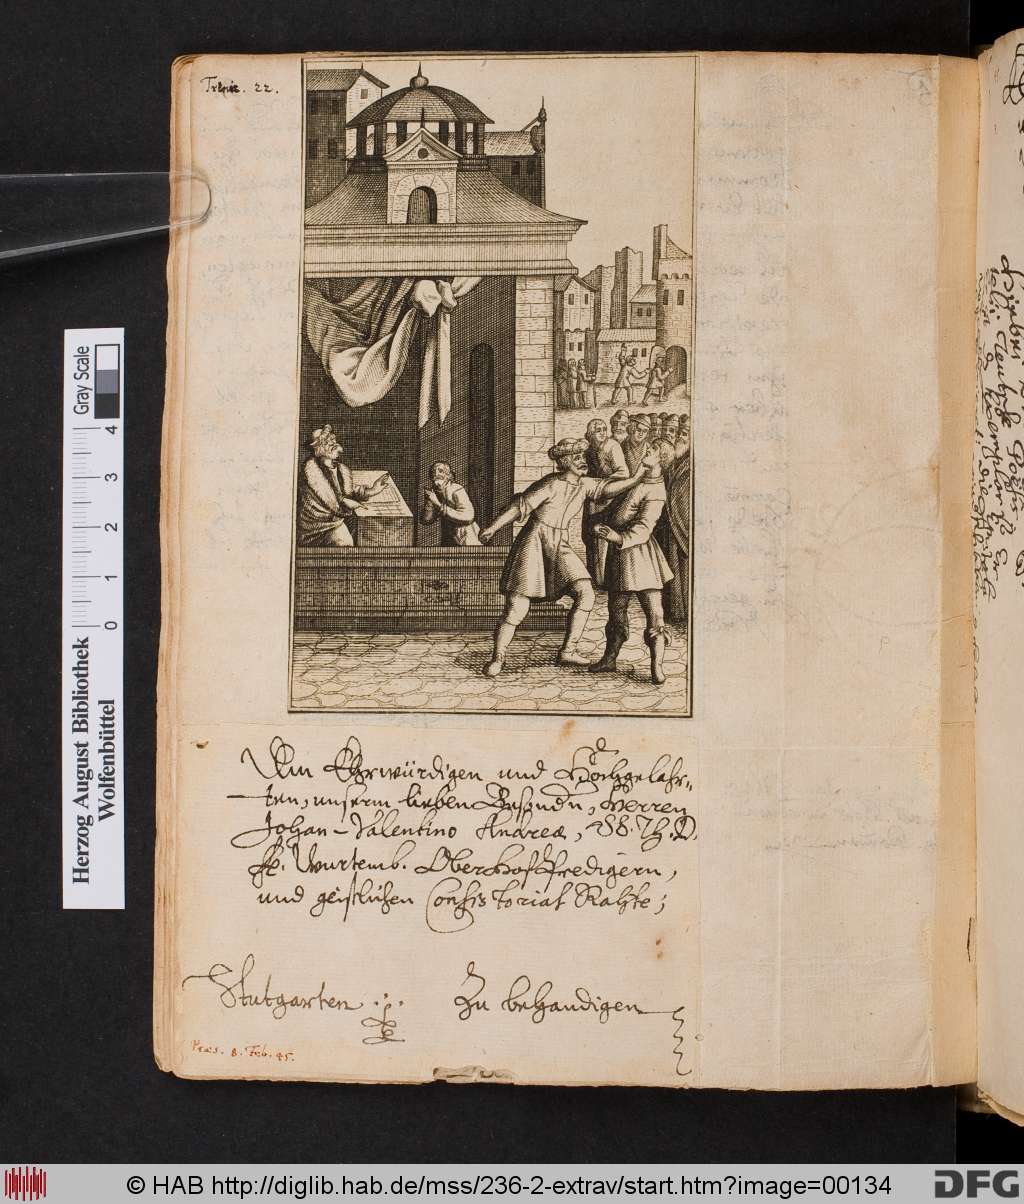 22.
Dem Ehrwürdigen und Hochgelahr-
ten, unserm lieben Besondern, Herren
Johan-Valentino Andreæ, SS. Th. D.
fr. Würtemb. OberHofPredigern,
und geistlichen Consistorial Rahte;
Stutgarten
Zu behandigen
Præs. 8. Feb. 45.
Herzog August Bibliothek
Wolfenbüttel
0 1 2 3 4
Gray Scale
© HAB http://diglib.hab.de/mss/236-2-extrav/start.htm?image=00134
DFG